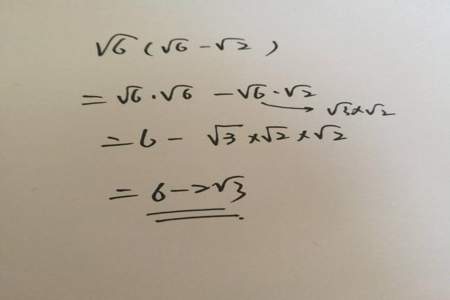 √6 (√6 - √2)
= √6 · √6 - √6 · √2
√3×√2
= 6 - √3 × √2 × √2
= 6 - 2√3